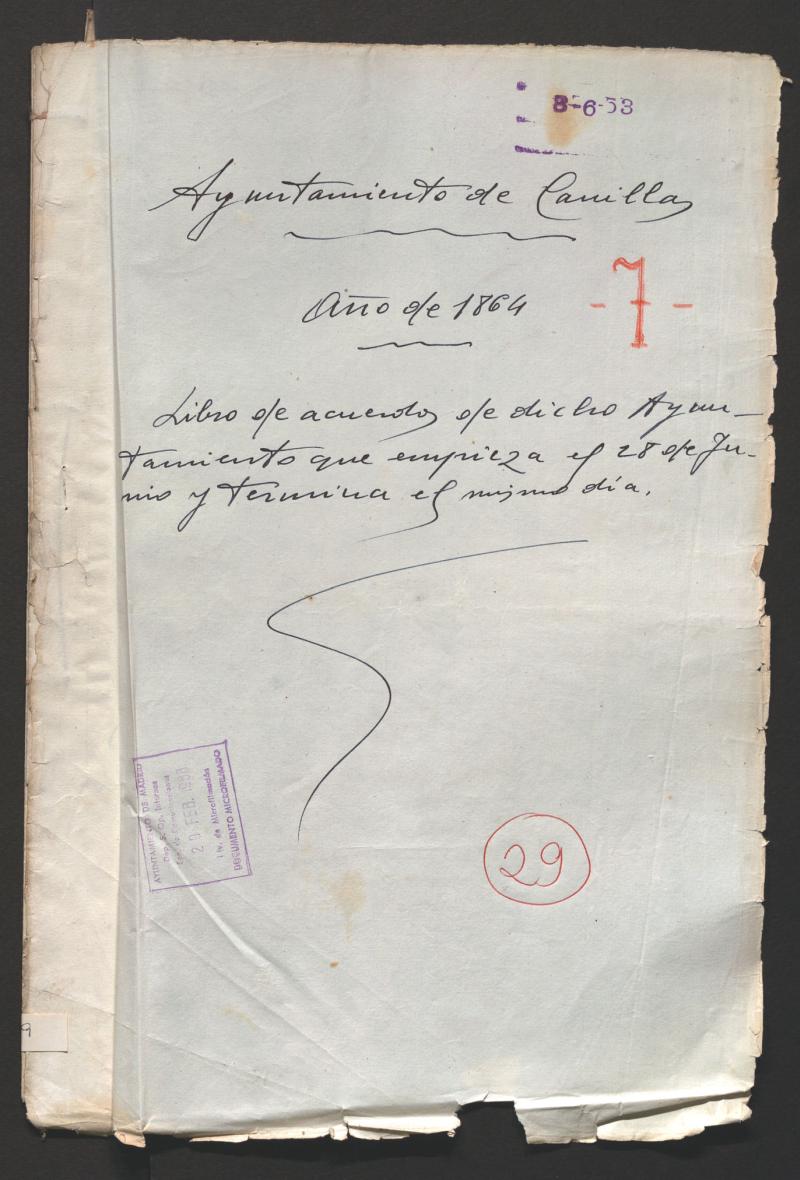 8-6-53
Ayuntamiento de Canillas
Año de 1864
-7-
Libro de acuerdos de dicho Ayun-
tamiento que empieza el 28 de Ju-
nio y termina el mismo día.
AYUNTAMIENTO DE MADRID
20 FEB. 1980
Inv. de Microfilmación
DOCUMENTO MICROFILMADO
29
9